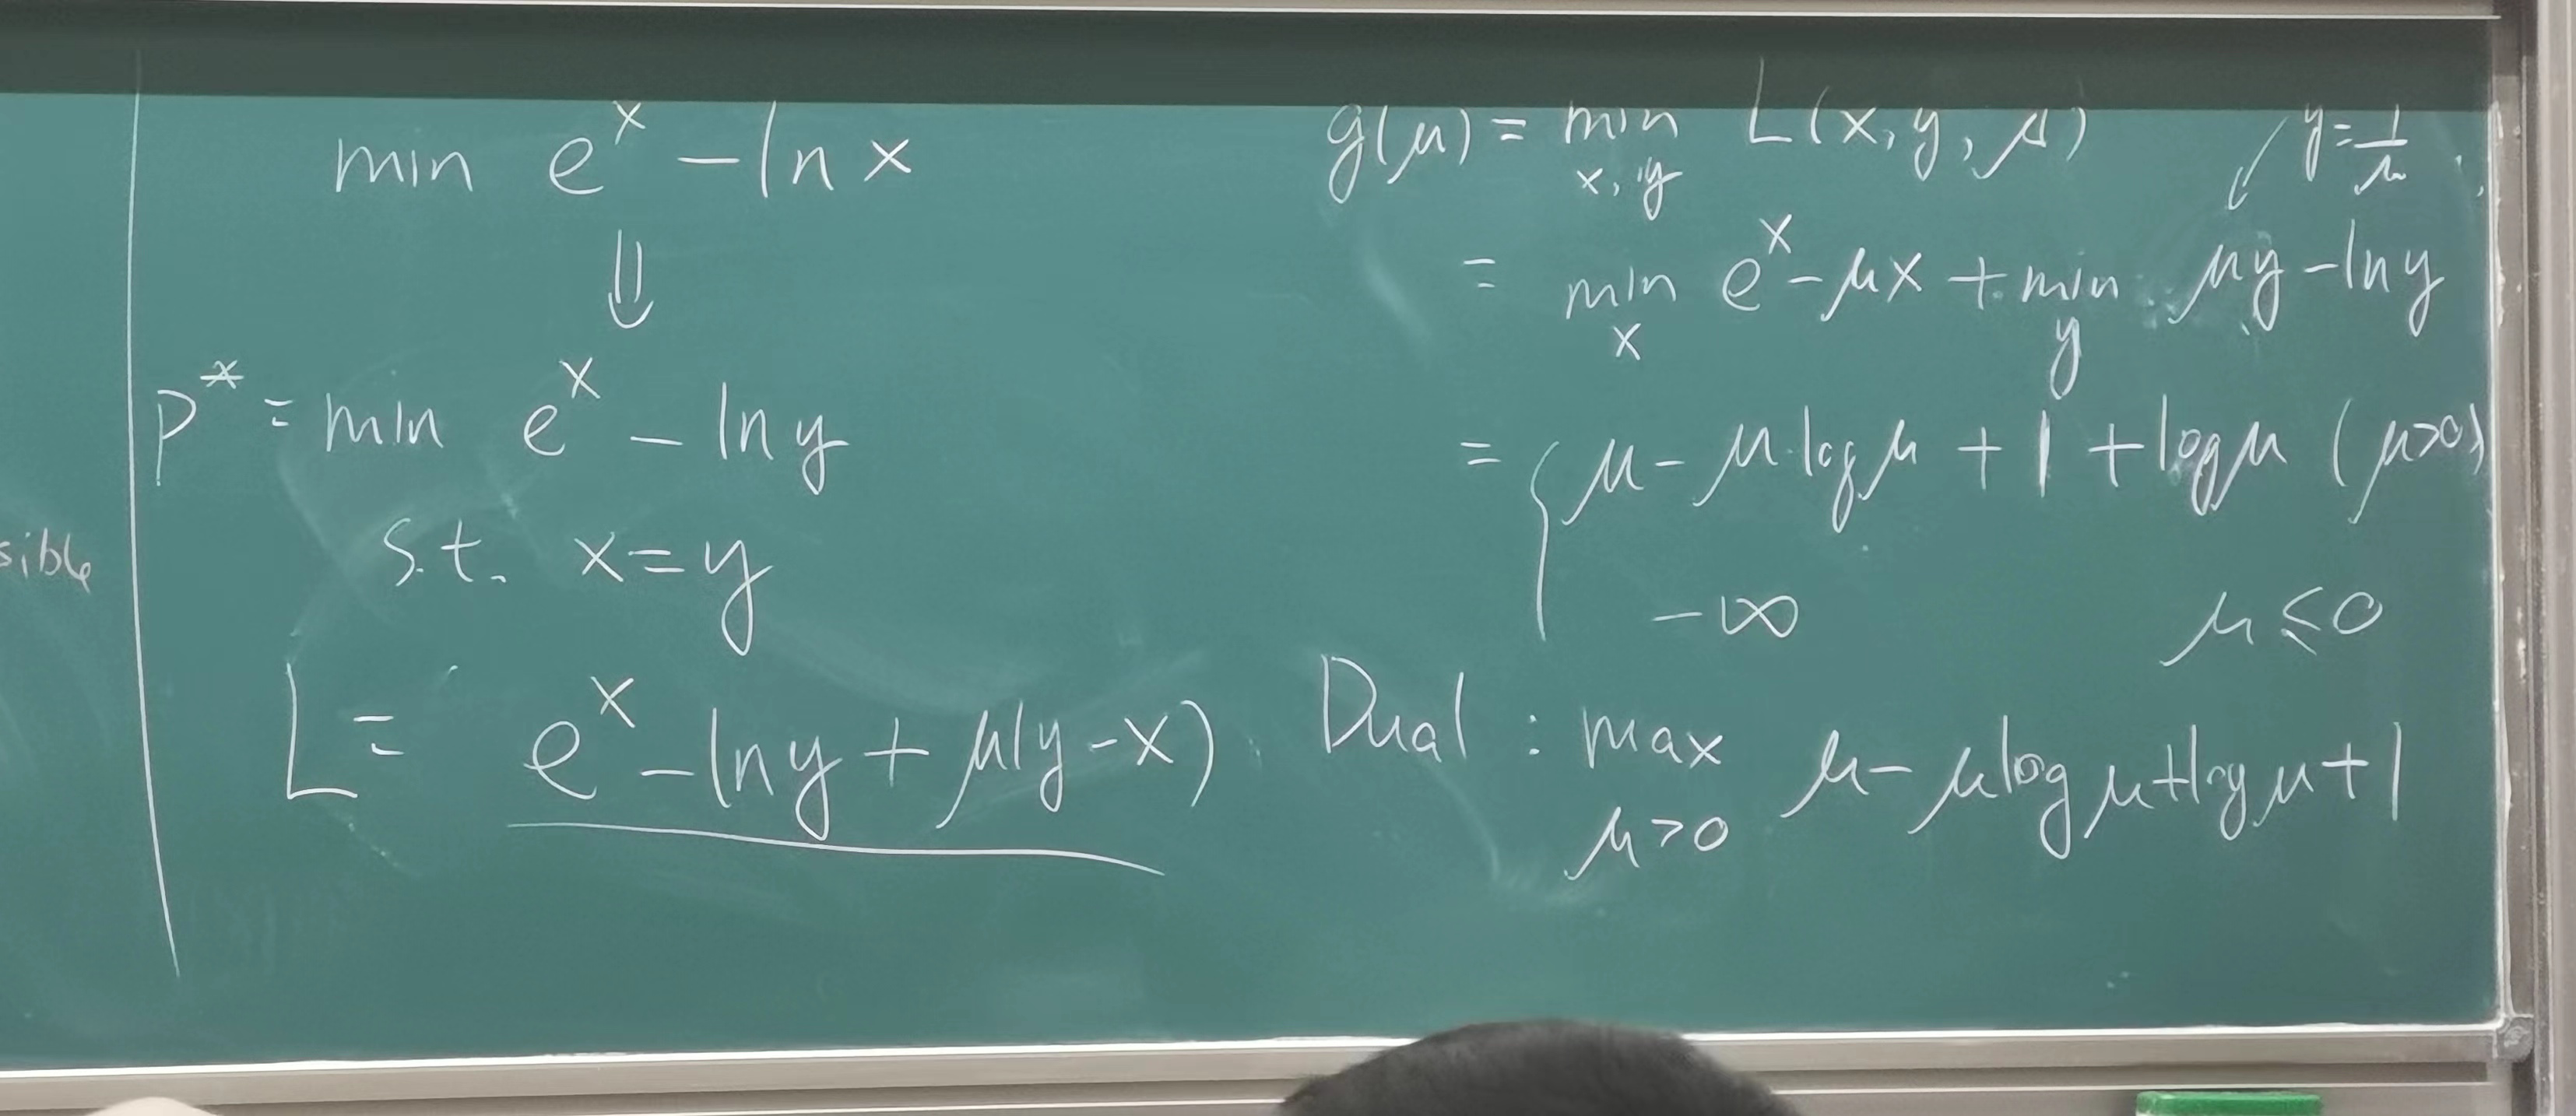 sible
min e^x - ln x
⇓
P^* = min e^x - ln y
s.t. x = y
L = e^x - ln y + μ(y - x)
g(μ) = min_{x, y} L(x, y, μ)
y = 1/μ
= min_x e^x - μx + min_y μy - ln y
= { μ - μ log μ + 1 + log μ (μ>0)
-∞ μ ≤ 0
Dual : max_{μ>0} μ - μ log μ + log μ + 1